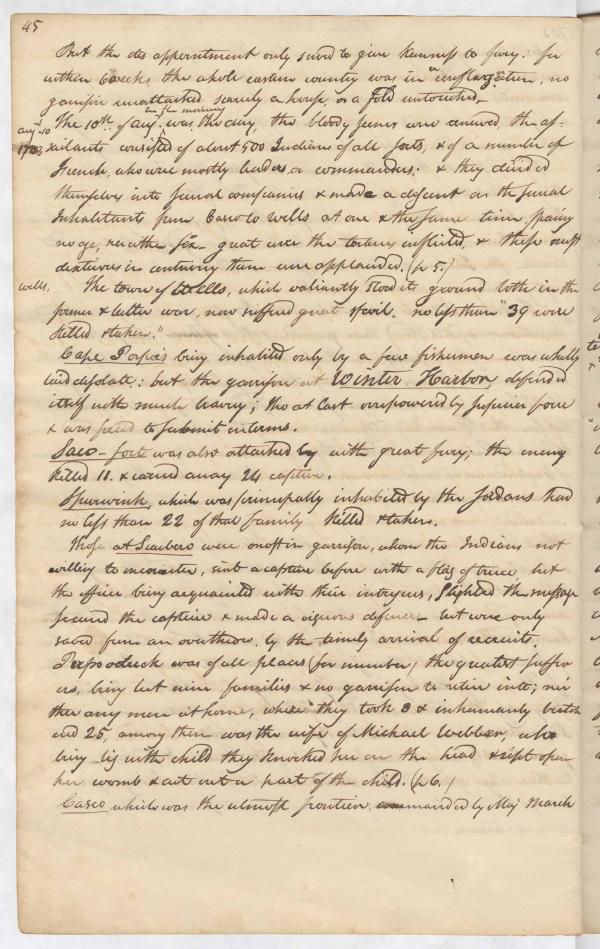 45
But the des appointment only served to give keenness to fury: for
within 6 weeks, the whole eastern country was in a conflagration, no
garrison unattacked scarcely a house, or a fold untouched.
in the morning
Aug. 10 The 10th of Aug. was, the day, the bloody scenes were renewed, the as-
1703, sailants consisted of about 500 Indians of all sorts, & of a number of
French, who were mostly leaders or commanders: & they divided
themselves into several companies & made a descent on the several
Inhabitants from Casco to Wells at one & the same time, sparing
no age, neither sex - great were the tortures inflicted, & those most
dexterous in torturing them were applauded. (p 5.)
Wells, The town of Wells, which valiantly stood its ground both in the
former & latter war, now suffered great spoil. no less than "39 were
killed & taken."
Cape Porpus being inhabited only by a few fishermen was wholly
laid desolate: but the garrison at Winter Harbor defended
itself with much bravery; tho at last overpowered by superior force
& was forced to submit on terms.
Saco-fort was also attacked by with great fury; the enemy
killed 11. & carried away 24 captive.
Spurwink, which was principally inhabited by the Jordans had
no less than 22 of that family killed & taken.
Those at Scarboro were most in garrison, whom the Indians not
willing to encounter, sent a captive before with a flag of truce, but
the officer being acquainted with their intrigues, slighted the message
secured the captive & made a vigorous defence - but were only
saved from an overthrow, by the timely arrival of recruits.
Perpooduck was of all places (for number) the greatest suffer-
ers, being but nine families & no garrison to retire into; nei
ther any men at home, where they took 8 & inhumanly butch
ered 25, among them was the wife of Michael Webber, who
being big with child they knocked her on the head & ript open
her womb & cut out a part of the child. (p 6.)
Casco which was the utmost frontier, commanded by Maj March